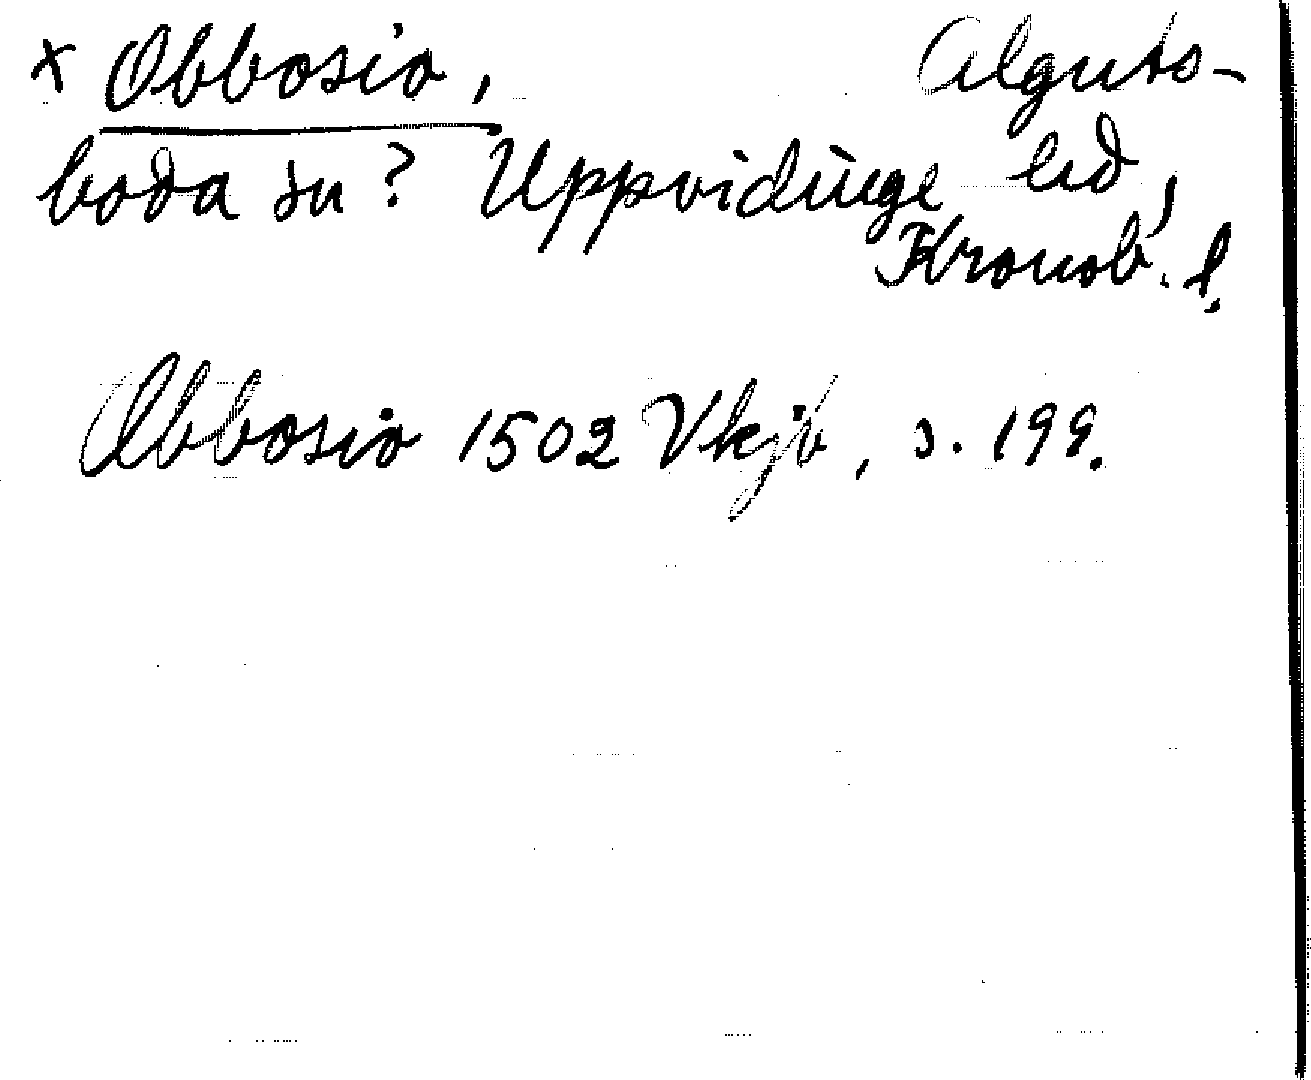 x Obbosio, Alguts-
boda sn? Uppvidinge hd,
Kronob. l.
Obbosio 1502 Vkjb, s. 199.